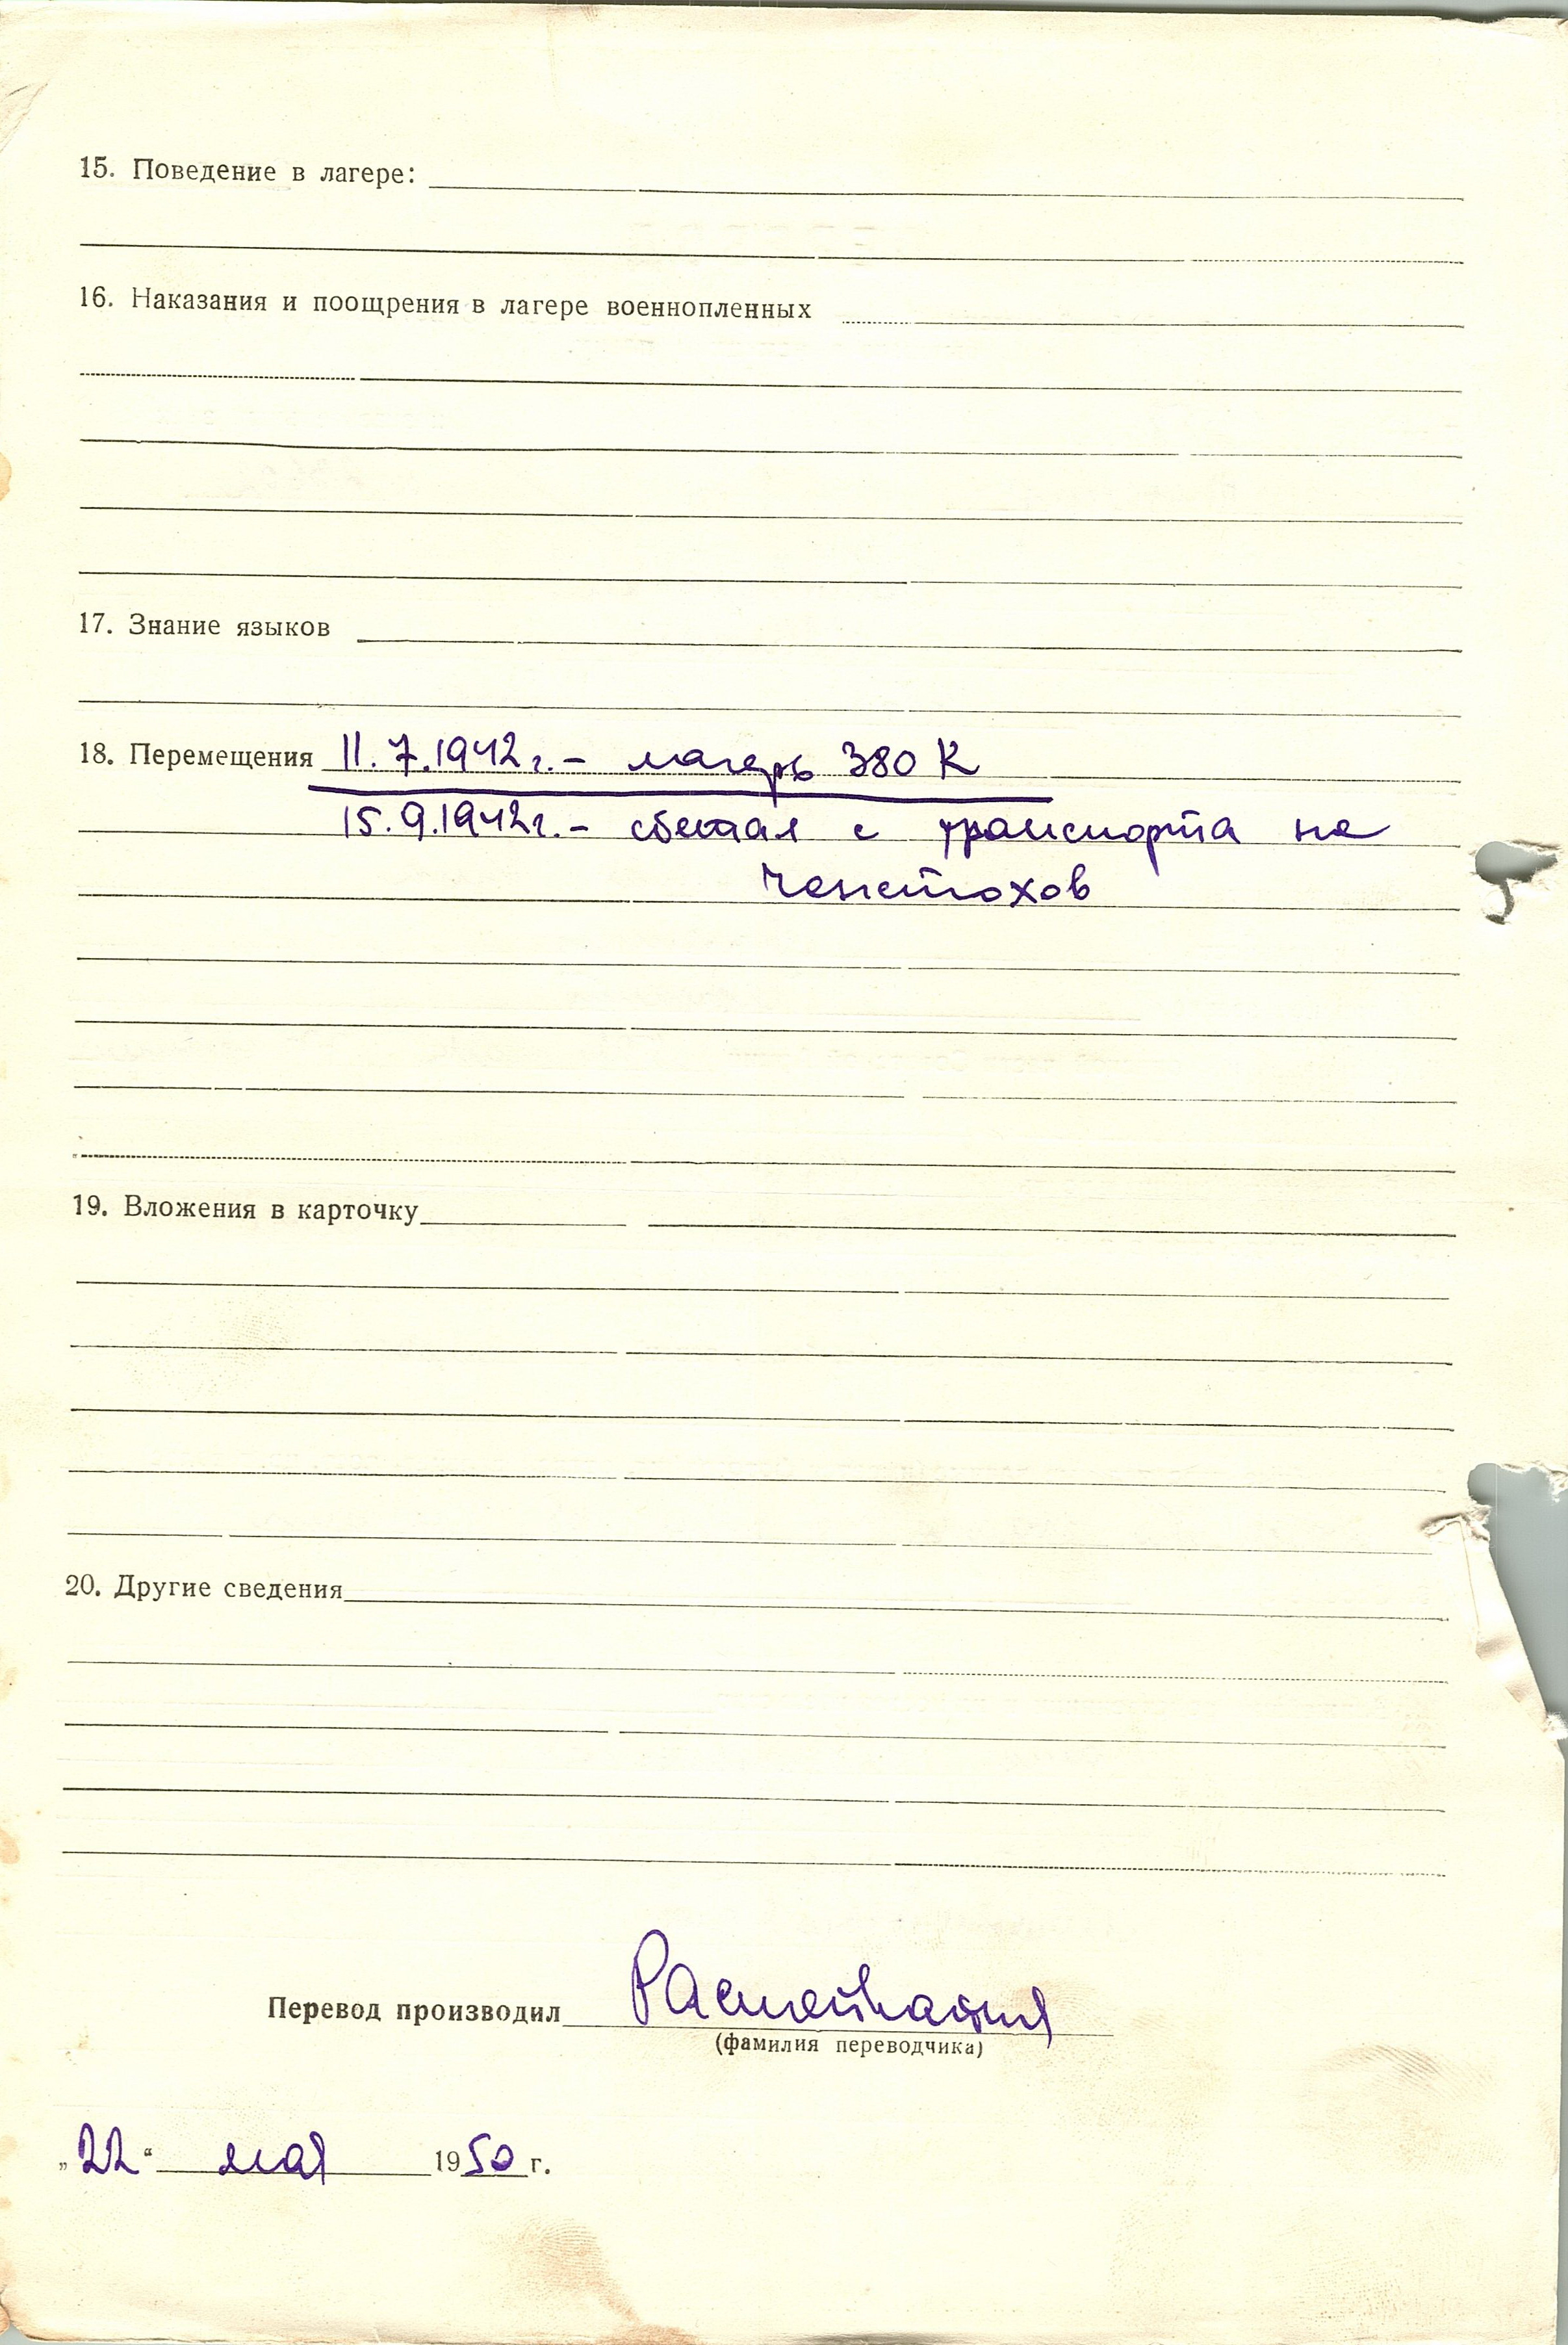 15. Поведение в лагере:
16. Наказания и поощрения в лагере военнопленных
17. Знание языков
18. Перемещения 11.7.1942г. – лагерь 380 К
15.9.1942г. – сбежал с транспорта на
Ченстохов
19. Вложения в карточку
20. Другие сведения
Перевод производил
(фамилия переводчика)
„22“ мая 1950 г.